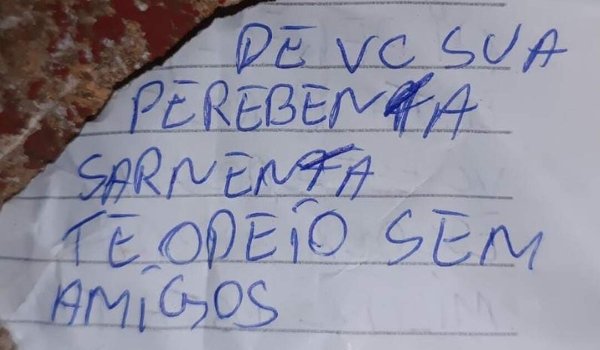 DE VC SUA
PEREBENTA
SARNENTA
TE ODEIO SEM
AMIGOS